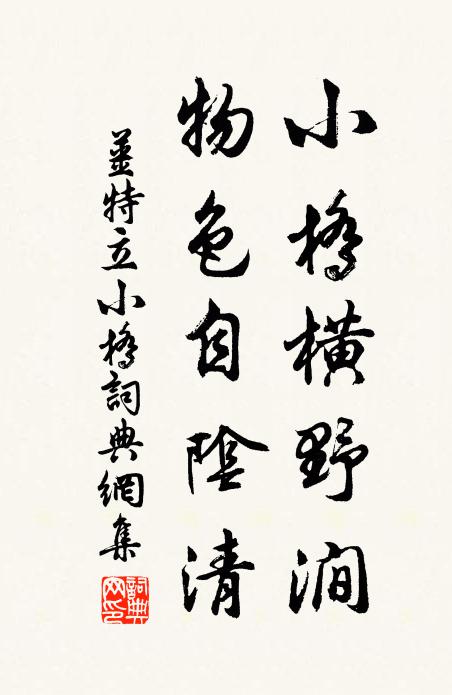 小橋橫野澗
物色自陰清
姜特立小橋詞典網集
詞典網印